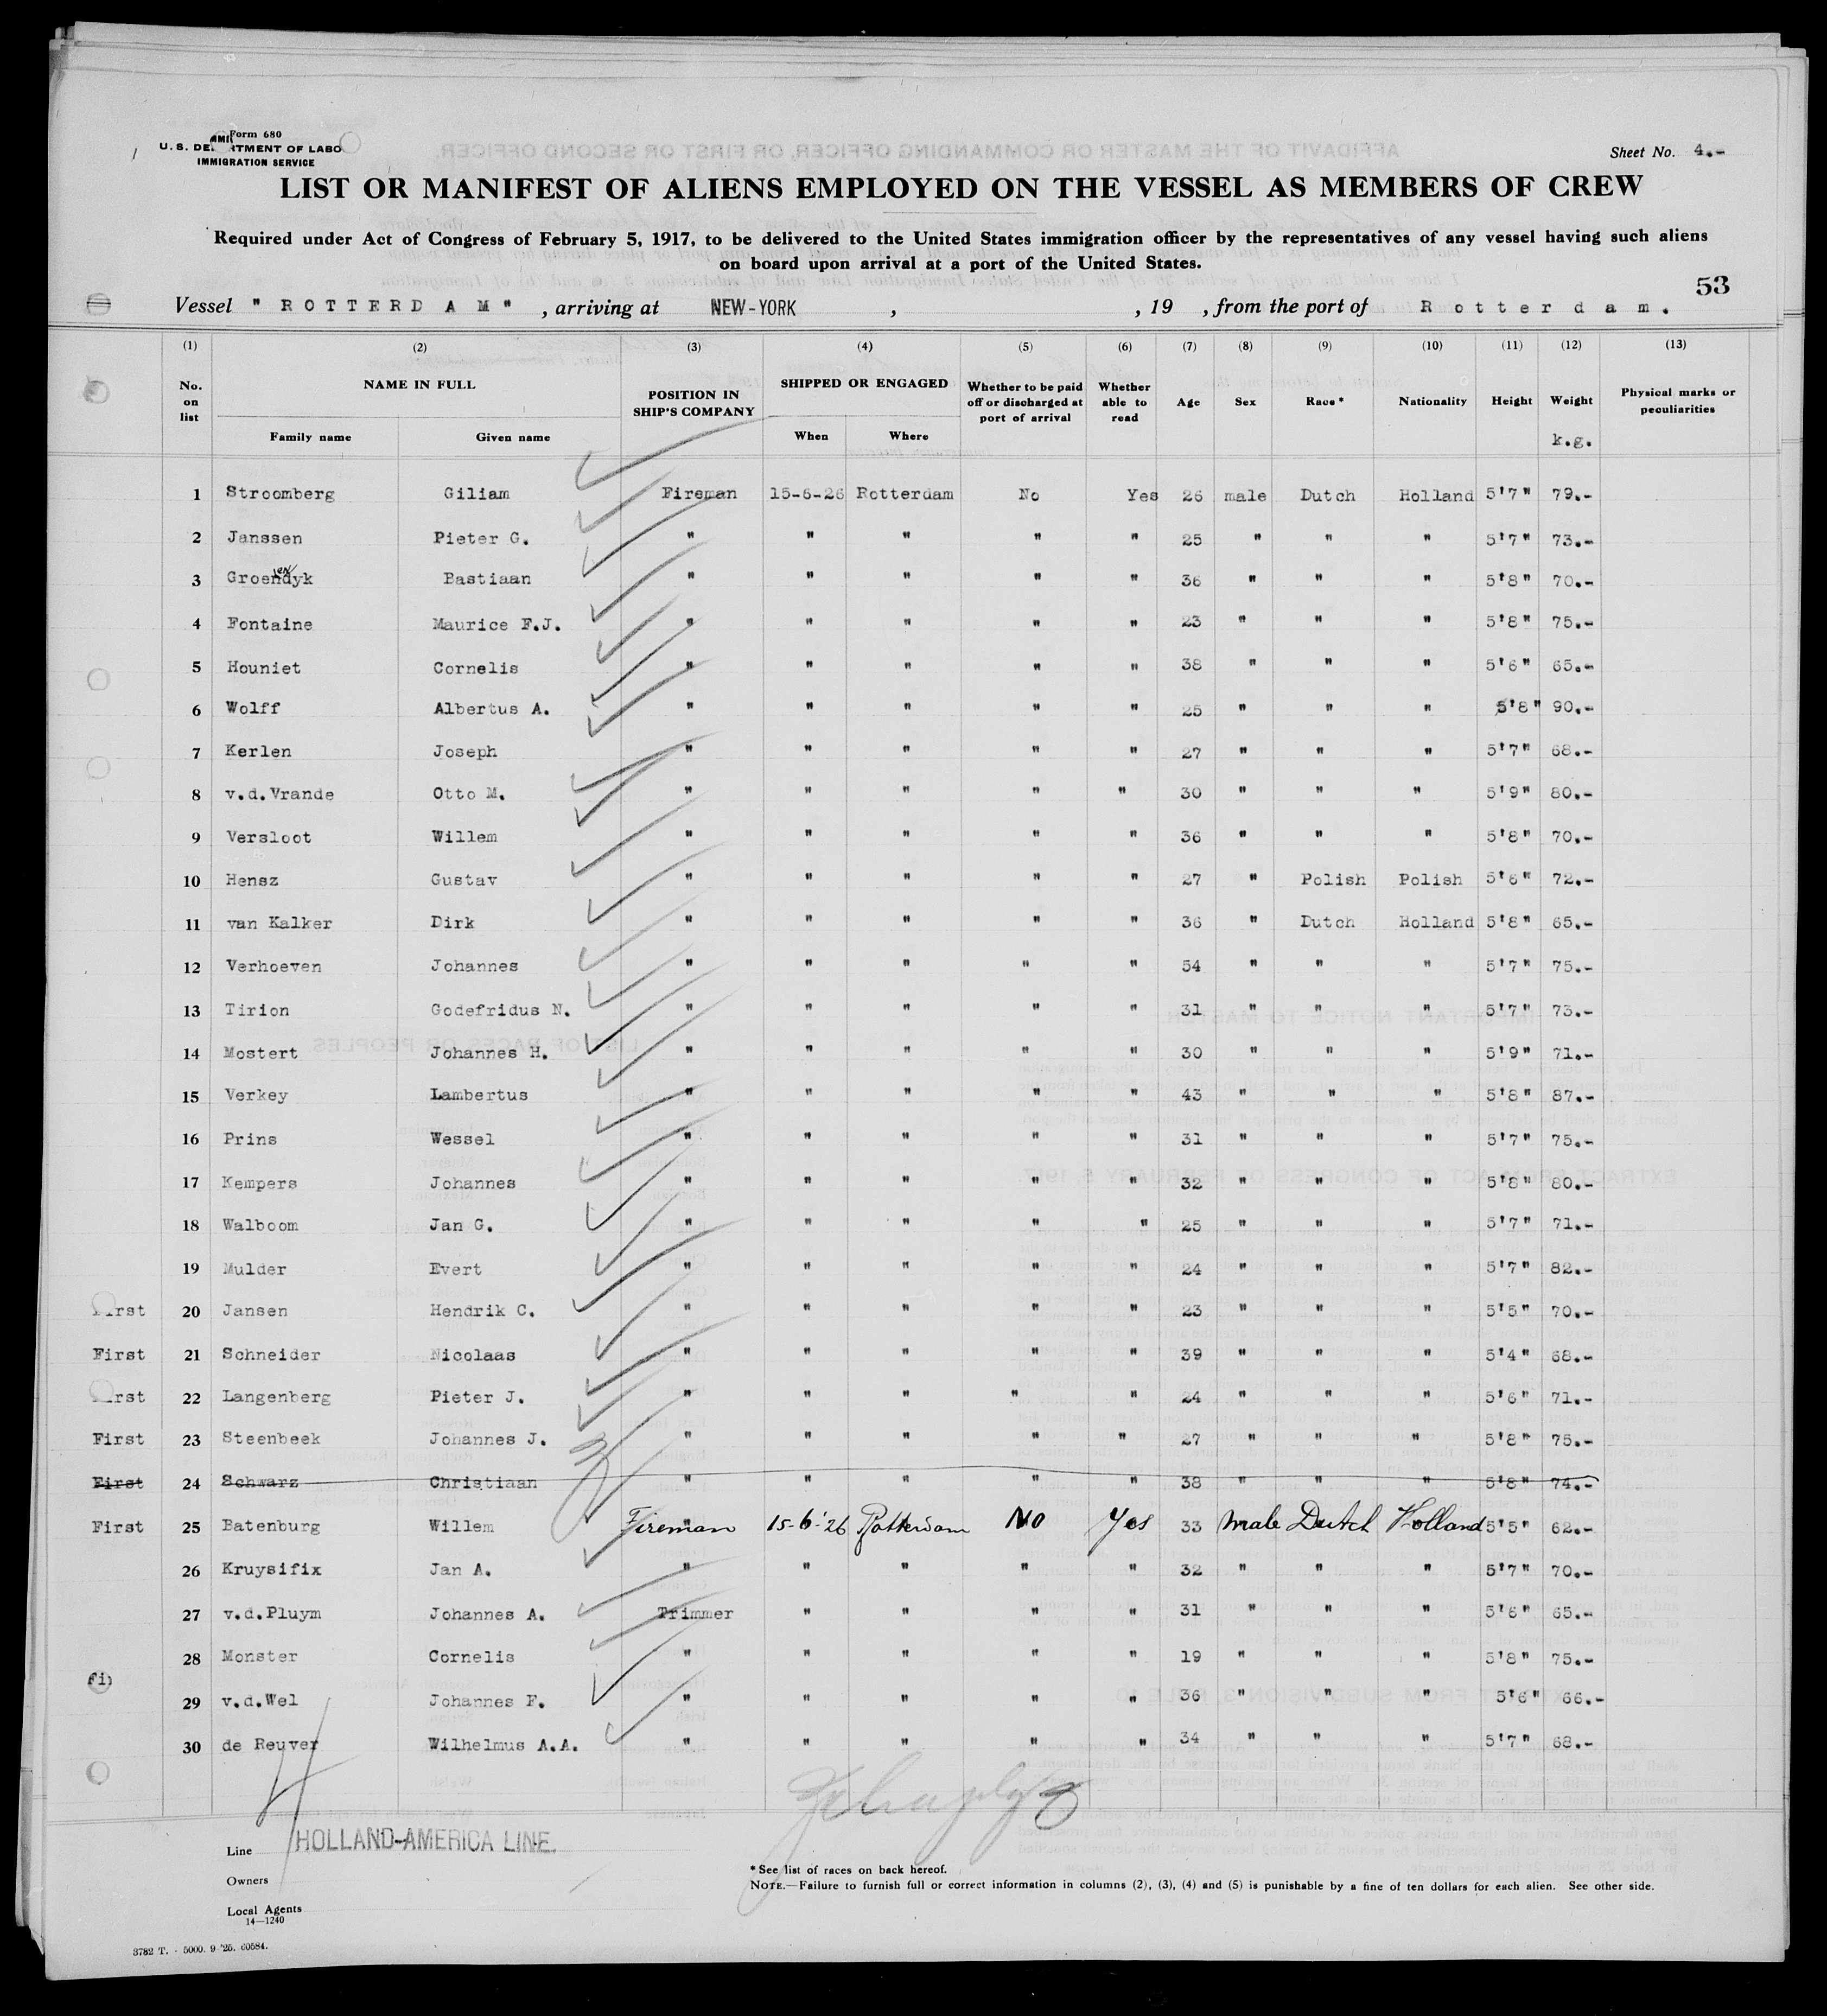 Form 680
U. S. DE TMENT OF LABO
IMMIGRATION SERVICE
Sheet No. 4.-
LIST OR MANIFEST OF ALIENS EMPLOYED ON THE VESSEL AS MEMBERS OF CREW
Required under Act of Congress of February 5, 1917, to be delivered to the United States immigration officer by the representatives of any vessel having such aliens
on board upon arrival at a port of the United States.
53
Vessel " ROTTERDAM " , arriving at NEW-YORK , , 19 , from the port of Rotterdam.
(1) (2) (3) (4) (5) (6) (7) (8) (9) (10) (11) (12) (13)
No. on list NAME IN FULL Family name Given name POSITION IN SHIP'S COMPANY SHIPPED OR ENGAGED When Where Whether to be paid off or discharged at port of arrival Whether able to read Age Sex Race* Nationality Height Weight k.g. Physical marks or peculiarities
1 Stroomberg Giliam Fireman 15-6-26 Rotterdam No Yes 26 male Dutch Holland 5'7" 79.-
2 Janssen Pieter G. " " " " " 25 " " " 5'7" 73.-
3 Groendyk en Bastiaan " " " " " 36 " " " 5'8" 70.-
4 Fontaine Maurice F.J. " " " " " 23 " " " 5'8" 75.-
5 Houniet Cornelis " " " " " 38 " " " 5'6" 65.-
6 Wolff Albertus A. " " " " " 25 " " " 5'8" 90.-
7 Kerlen Joseph " " " " " 27 " " " 5'7" 68.-
8 v.d.Vrande Otto M. " " " " " 30 " " " 5'9" 80.-
9 Versloot Willem " " " " " 36 " " " 5'8" 70.-
10 Hensz Gustav " " " " " 27 " Polish Polish 5'6" 72.-
11 van Kalker Dirk " " " " " 36 " Dutch Holland 5'8" 65.-
12 Verhoeven Johannes " " " " " 54 " " " 5'7" 75.-
13 Tirion Godefridus N. " " " " " 31 " " " 5'7" 73.-
14 Mostert Johannes H. " " " " " 30 " " " 5'9" 71.-
15 Verkey Lambertus " " " " " 43 " " " 5'8" 87.-
16 Prins Wessel " " " " " 31 " " " 5'7" 75.-
17 Kempers Johannes " " " " " 32 " " " 5'8" 80.-
18 Walboom Jan G. " " " " " 25 " " " 5'7" 71.-
19 Mulder Evert " " " " " 24 " " " 5'7" 82.-
rst 20 Jansen Hendrik C. " " " " " 23 " " " 5'5" 70.-
First 21 Schneider Nicolaas " " " " " 39 " " " 5'4" 68.-
rst 22 Langenberg Pieter J. " " " " " 24 " " " 5'6" 71.-
First 23 Steenbeek Johannes J. " " " " " 27 " " " 5'8" 75.-
First 24 Schwarz Christiaan " " " " " 38 " " " 5'8" 74.-
First 25 Batenburg Willem Fireman 15-6-'26 Rotterdam No Yes 33 male Dutch Holland 5'5" 62.-
26 Kruysifix Jan A. " " " " " 32 " " " 5'7" 70.-
27 v.d.Pluym Johannes A. Trimmer " " " " 31 " " " 5'6" 65.-
28 Monster Cornelis " " " " " 19 " " " 5'8" 75.-
Fi
29 v.d.Wel Johannes F. " " " " " 36 " " " 5'6" 66.-
30 de Reuver Wilhelmus A.A. " " " " " 34 " " " 5'7" 68.-
Line HOLLAND-AMERICA LINE.
Owners
Local Agents
14—1240
* See list of races on back hereof.
NOTE.—Failure to furnish full or correct information in columns (2), (3), (4) and (5) is punishable by a fine of ten dollars for each alien. See other side.
3782 T. - 5000. 9 '25. 60584.